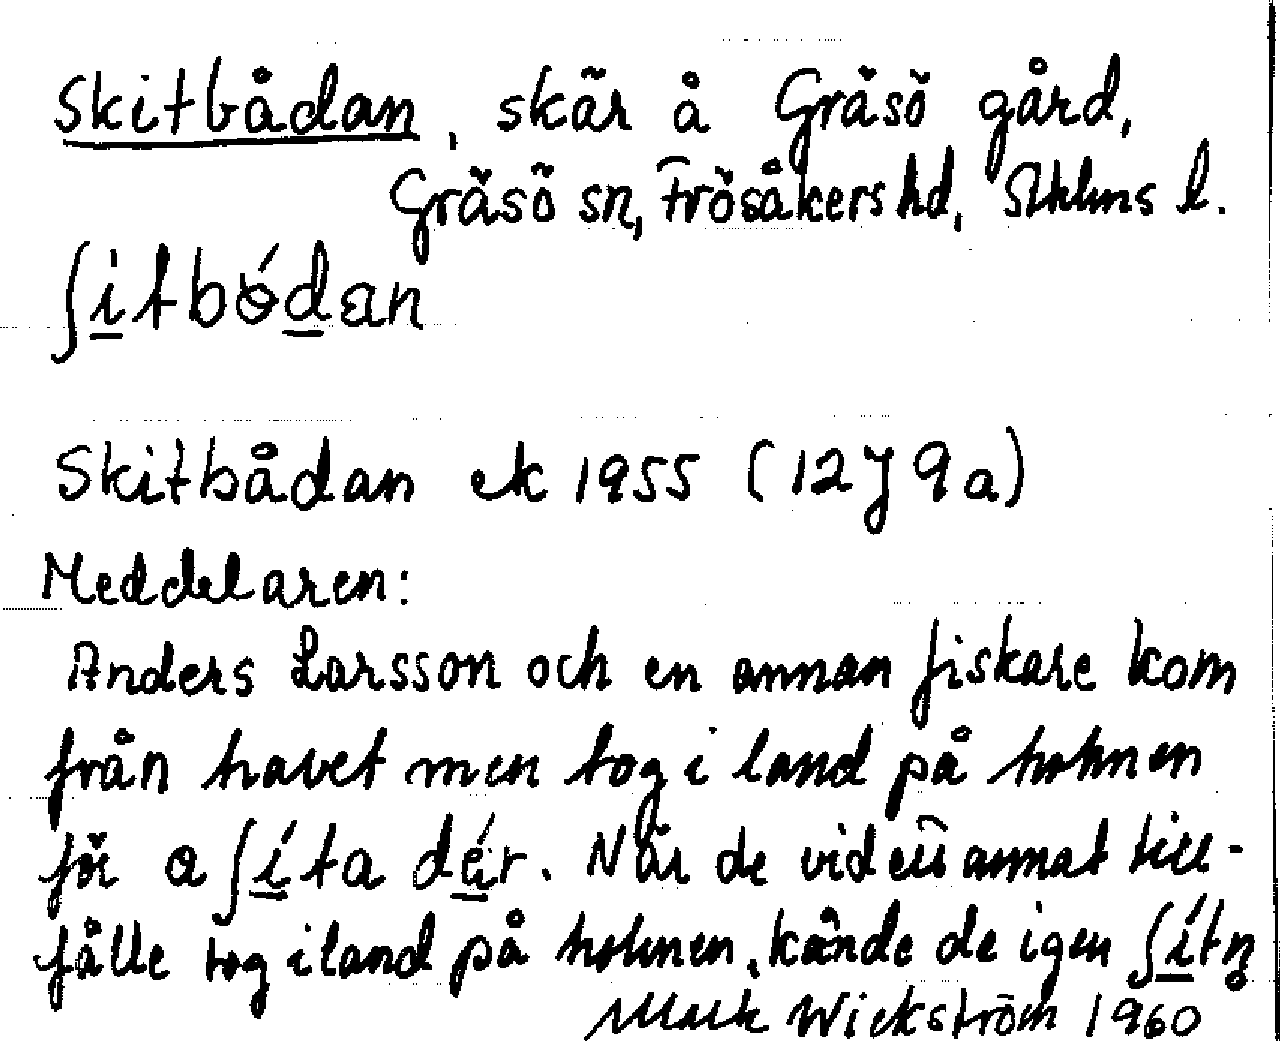 Skitbådan, skär å Gräsö gård,
Gräsö sn, Frösåkers hd, Sthlms l.
ʃi̲tbɵ́d̲an
Skitbådan ek 1955 (12J 9a)
Meddelaren:
Anders Larsson och en annan fiskare kom
från havet men tog i land på holmen
för a ʃí̲ta dǽ̲r. När de vid ett annat till-
fälle tog i land på holmen, kände de igen ʃí̲tn̥
Wickström 1960